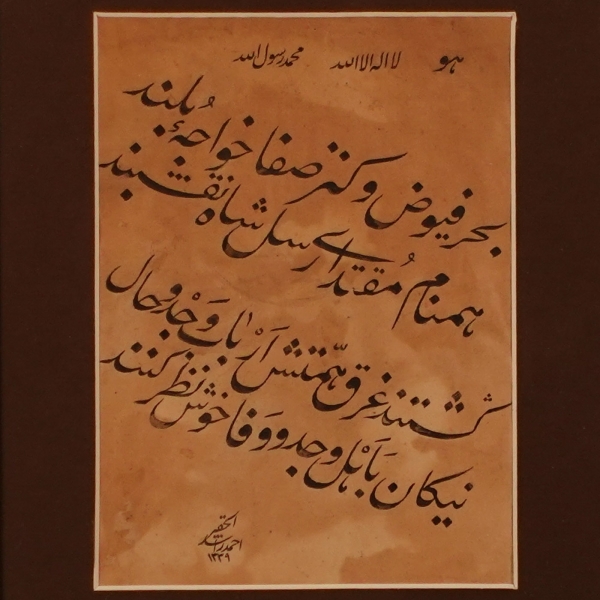 هو لا اله الا الله محمد رسول الله
بحر فیوض و کنز صفا خواجهٔ بلند
همنام مُقتدای رسل شاه نقشبند
گشتند غرق همّتش اَرْبابِ وَجْد و حال
نیکان بَاَهْل وجد و وفا خوش نظر کنند
الحقیر
احمد راشد
۱۳۳۹